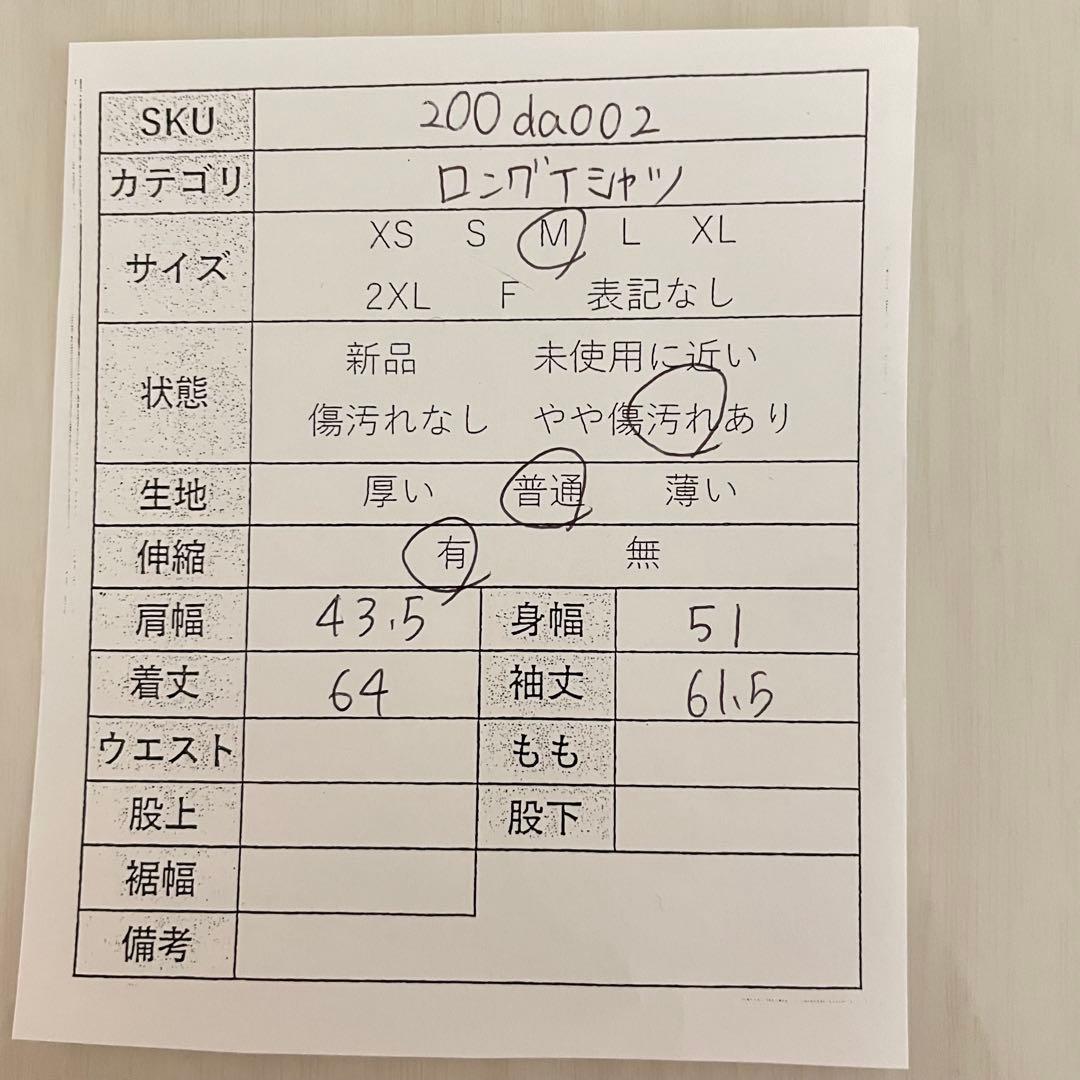 SKU 200da002
カテゴリ ロングTシャツ
サイズ XS S M L XL
2XL F 表記なし
状態 新品 未使用に近い
傷汚れなし やや傷汚れあり
生地 厚い 普通 薄い
伸縮 有 無
肩幅 43.5 身幅 51
着丈 64 袖丈 61.5
ウエスト もも
股上 股下
裾幅
備考